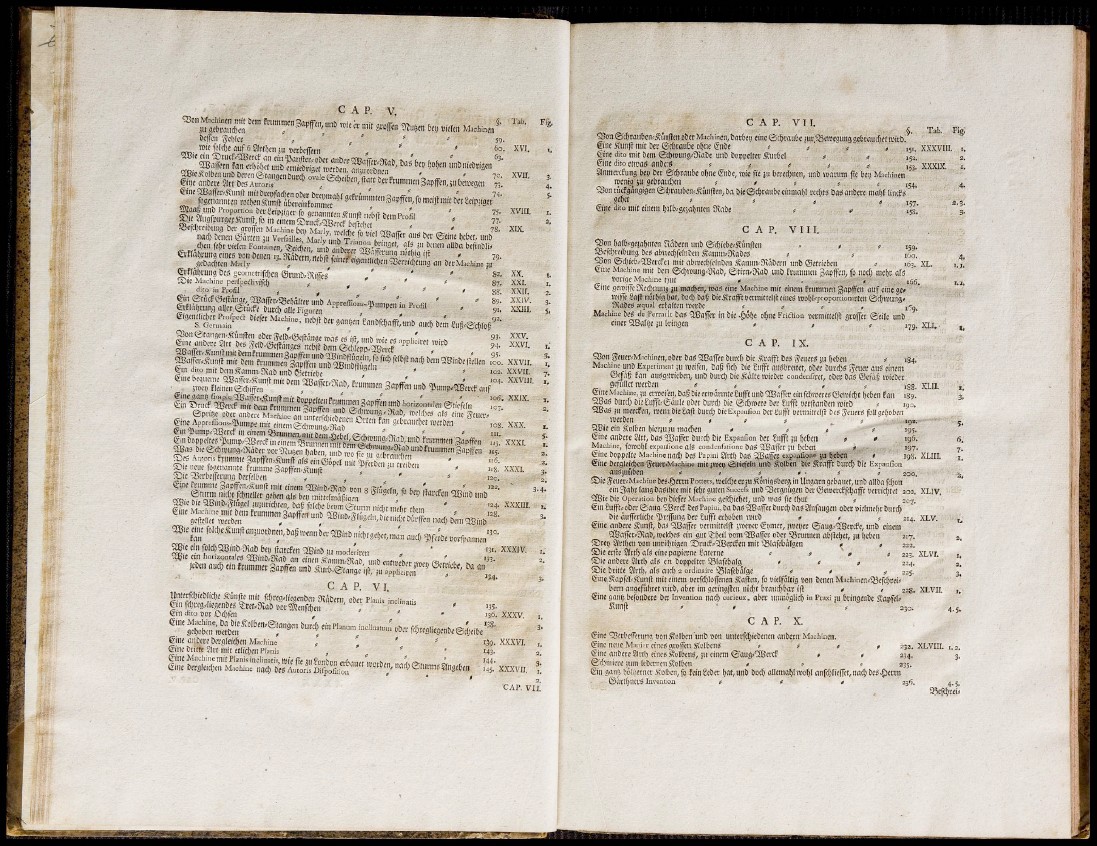 CAP. V.
§. Tab. Fig.
Von Machinen mit dem krummen Zapffen, und wie er mit grossen Nutzen bey vielen Machinen
zu gebrauchen
dessen Fehler 59.
wie solche auf 6 Arthen zu verbessern 60. XVI. 1.
Wie ein Druck-Werck an ein Panster- oder ander Wasser-Rad, das bey hohen und niedrigen 63.
Wassern kan erhöhet und erniedriget werden, anzuordnen
Wie Kolben und deren Stangen durch ovale Scheiben, statt der krummen Zapffen, zu bewegen 70. XVII. 3.
Eine andere Art des Autoris 73. 4.
Eine Wasser-Kunst mit dreyfachen oder dreymahl gekrümmten Zapffen, so meist mit der Leipziger 74. 5.
sogenannten rothen Kunst übereinkommet
Maaß und Proportion der Leipziger so genannten Kunst nebst dem Profil 75. XVIII. 1.
Die Augspurger Kunst, so in einem Druck-Werck bestehet 77. 2.
Beschreibung der grossen Machine bey Marly, welche so viel Wasser aus der Seine hebet, und 78. XIX.
nach denen Gärten zu Versailles, Marly und Trianon bringet, als zu denen allda befindli-
chen sehr vielen Fontainen, Teichen, und anderer Wässerung nöthig ist 79.
Erklährung eines von denen 14. Rädern, nebst seiner eigentlichen Verrichtung an der Machine zu
gedachten Marly
Erklährung des geometrischen Grund-Risses 82. XX. 1.
Die Machine perspectivisch 87. XXI. 1.
dito in Profil 88. XXII. 2.
Ein Stück Gestänge, Wasser-Behälter und Appressions-Pumpen in Profil 89. XXIV. 3.
Erklährung aller Stücke durch alle Figuren 91. XXIII. 5.
Eigentlicher Prospect dieser Machine, nebst der gantzen Landschafft, und auch dem Lust-Schloß 92.
S. Germain
Von Stangen-Künsten oder Feld-Gestänge was es ist, und wie es appliciret wird 93. XXV.
Eine andere Art des Feld-Gestänges nebst dem Schlepp-Werck 94. XXVI. 1.
Wasser-Kunst mit dem krummen Zapffen und Windflügeln, so sich selbst nach dem Winde stellen 95. 5.
Wasser-Kunst mit dem krummen Zapffen und Windflügeln 100. XXVII. 1.
Ein dito mit dem Kamm-Rad und Getriebe 102. XXVII. 7.
Eine bequeme Wasser-Kunst mit dem Wasser-Rad, krummen Zapffen und Pump-Werck auf 104. XXVIII. 1.
zwey kleinen Schiffen
Eine gantz simple Wasser-Kunst mit doppelten krummen Zapffen und horizontalen Stiefeln 106. XXIX. 1.
Ein Druck-Werck mit dem krummen Zapffen und Schwung-Rad, welches als eine Feuer- 107. 2.
Spritze oder andere Machine an unterschiedenen Orten kan gebrauchet werden
Eine Appressions-Pumpe mit einem Schwung-Rad 108. XXX. 1.
Ein Pump-Werck in einem Brunnen, mit dem Hebel, Schwung-Rad, und krummen Zapffen 111. 5.
Ein doppeltes Pump-Werck in einem Brunnen mit dem Schwung-Rad und krummen Zapffen 113. XXXI. 1.
Was die Schwung-Räder vor Nutzen haben, und wo sie zu gebrauchen 115. 2.
Des Autoris krumme Zapffen-Kunst als ein Göpel mit Pferden zu treiben 116. 2.
Die neue sogenannte krumme Zapffen-Kunst 118. XXXI. 3.
Die Verbesserung derselben 119. 2.
Eine krumme Zapffen-Kunst mit einem Wind-Rad von 8 Flügeln, so bey starcken Wind und 122. 3. 4.
Sturm nicht schneller gehen als bey mittelmäßigen
Wie die Wind-Flügel anzurichten, daß solche beym Sturm nicht mehr thun 124. XXXIII. 1.
Eine Machine mit dem krummen Zapffen und Wind-Flügeln, die nicht dürffen nach dem Wind 128. 2.
gestellet werden
Wie eine solche Kunst anzuordnen, daß wenn der Wind nicht gehet, man auch Pferde vorspannen 130.
kan
Wie ein solch Wind-Rad bey starcken Wind zu moderiren 131. XXXIV. 1.
Wie ein horizontales Wind-Rad an einen Kamm-Rad, und entweder zwey Getriebe, da an 133. 2.
jeden auch ein krummer Zapffen und Kurb-Stange ist, zu appliciren 134. 3.
CAP. VI.
Unterschiedliche Künste mit schreg-liegenden Rädern, oder Planis inclinatis
Ein schreg-liegendes Tret-Rad vor Menschen 135.
Ein dito vor Ochsen 136. XXXV. 1.
Eine Machine, da die Kolben-Stangen durch ein Planum inclinatum oder schregliegende Scheibe 138. 3.
gehoben werden
Eine andere dergleichen Machine 139. XXXVI. 1.
Eine dritte Art mit etlichen Planis 143. 2.
Eine Machine mit Planis inclinatis, wie sie zu London erbauet worden, nach Sturms Angeben 144. 3.
Eine dergleichen Machine nach des Autoris Disposition 145. XXXVII. 1.
2.
CAP. VII.
CAP. VII.
§. Tab. Fig.
Von Schrauben-Künsten oder Machinen, darbey eine Schraube zur Bewegung gebrauchet wird.
Eine Kunst mit der Schraube ohne Ende 151. XXXVIII. 1.
Eine dito mit dem Schwung-Rade und doppelter Kurbel 152. 2.
Eine dito etwas anders 153. XXXIX. 2.
Anmerckung bey der Schraube ohne Ende, wie sie zu berechnen, und warum sie bey Machinen
wenig zu gebrauchen 154. 4.
Von rückgängigen Schrauben-Künsten, da die Schraube einmahl rechts das andere mahl lincks
gehet 157. 2. 3.
Eine dito mit einem halb-gezahnten Rade 158. 3.
CAP. VIII.
Von halb-gezahnten Rädern und Schieb-Künsten 159.
Beschreibung des abwechselnden Kamm-Rades 160. 4.
Von Schieb-Wercken mit abwechselnden Kamm-Rädern und Getrieben 163. XL. 1. 2.
Eine Machine mit dem Schwung-Rad, Stirn-Rad und krummen Zapffen, so noch mehr als
vorige Machine thut 166. 1. 2.
Eine gewisse Rechnung zu machen, was eine Machine mit einem krummen Zapffen auf eine ge-
wisse Last nöthig hat, doch daß die Krafft vermittelst eines wohl-proportionirten Schwung-
Rades æqual erhalten werde 169.
Machine des de Perrault das Wasser in die Höhe ohne Friction vermittelst grosser Seile und
einer Waltze zu bringen 179. XLI. 1.
CAP. IX.
Von Feuer-Machinen, oder das Wasser durch die Krafft des Feuers zu heben 184.
Machine und Experiment zu weisen, daß sich die Lufft ausbreitet, oder durchs Feuer aus einem
Gefäß kan ausgetrieben, und durch die Kälte wieder condensiret, oder das Gefäß wieder
gefüllet werden 188. XLII. 1.
Eine Machine, zu erweisen, daß die erwärmte Lufft und Wasser ein schweres Gewicht heben kan 189. 3.
Was durch die Lufft-Säule oder durch die Schwere der Lufft verstanden wird 190.
Was zu mercken, wenn die Last durch die Expansion der Lufft vermittelst des Feuers soll gehoben
werden 192. 5.
Wie ein Kolben hierzu zu machen 195.
Eine andere Art, das Wasser durch die Expansion der Lufft zu heben 196. 6.
Machine, sowohl expansione als condensatione das Wasser zu heben 197. 7.
Eine doppelte Machine nach des Papini Arth das Wasser expansione zu heben 198. XLIII. 1.
Eine dergleichen Feuer-Machine mit zwey Stiefeln und Kolben die Krafft durch die Expansion
auszuüben 200. 2.
Die Feuer-Machine des Herrn Potters, welche er zu Königsberg in Ungarn gebauet, und allda schon
ein Jahr lang das ihre mit sehr guten Success und Vergnügen der Gewerckschafft verrichtet 202. XLIV.
Wie die Operation bey dieser Machine geschiehet, und was sie thut 207.
Ein Lufft- oder Saug-Werck des Papini, da das Wasser durch das Ansaugen oder vielmehr durch
die äusserliche Pressung der Lufft erhoben wird 214. XLV. 1.
Eine andere Kunst, das Wasser vermittelst zweyer Eimer, zweyer Saug-Wercke, und einem
Wasser-Rad, welches ein gut Theil vom Wasser oder Brunnen abstehet, zu heben 217. 2.
Drey Arthen von unrichtigen Druck-Wercken mit Blasebälgen 222.
Die erste Arth als eine papierne Laterne 223. XLVI. 1.
Die andere Arth als ein doppelter Blasebalg 224. 2.
Die dritte Arth, als auch 2 ordinaire Blasebälge 225. 3.
Eine Kapsel-Kunst mit einem verschlossenen Kasten, so vielfältig von denen Machinen-Beschrei-
bern angeführet wird, aber im geringsten nicht brauchbar ist 228. XLVII. 1.
Eine gantz besondere der Invention nach curieux, aber unmöglich in Praxi zu bringende Kapsel-
Kunst 230. 4. 5.
CAP. X.
Eine Verbesserung von Kolben und von unterschiedenen andern Machinen.
Eine neue Manier eines Kolbens 232. XLVIII. 1. 2.
Eine andere Art eines Kolbens, zu einem Saug-Werck 234. 3.
Schmiere zum ledernen Kolben 235.
Ein gantz höltzerner Kolben, so kein Leder hat, und doch allemahl wohl anschliesset, nach des Herrn
Gärtners Invention 236. 4. 5.
Beschrei-